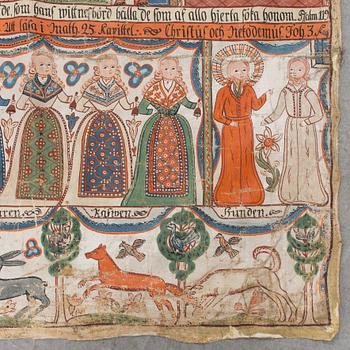 de som hans wittnesbörd hålla de som af allo hjerta söka honom. Psalm. 119
läsa i Math. 25 Kapittel. Christus och Nekodemus Joh 3.
Räfwen Hunden